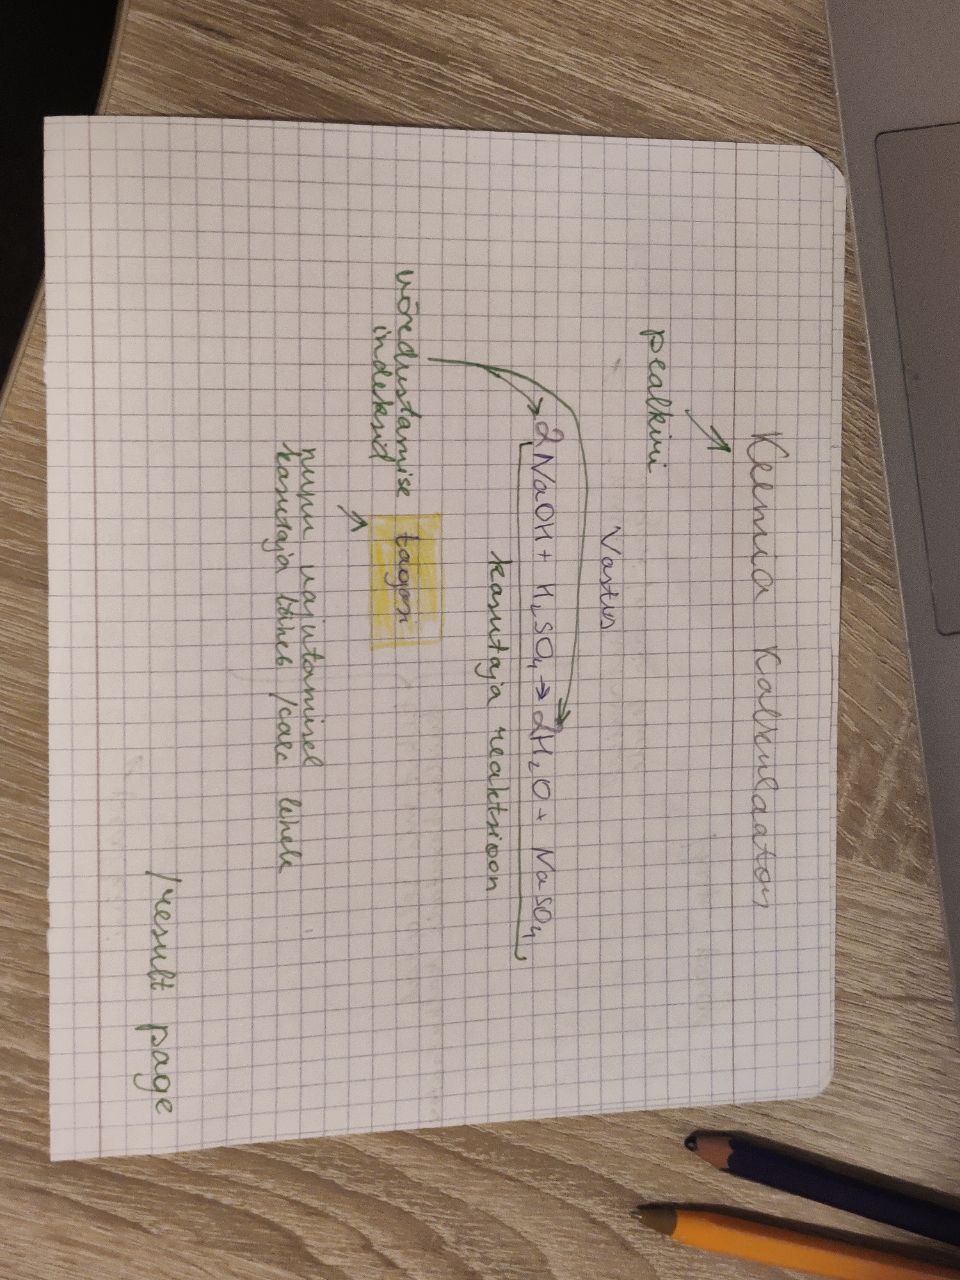 Keemia Kalkulaator
pealkiri
Vastus
2NaOH + H₂SO₄ → 2H₂O + NaSO₄
kasutaja reaktsioon
võrdustamise
indeksid
tagasi
nupu vajutamisel
kasutaja läheb /calc lehele
/result page